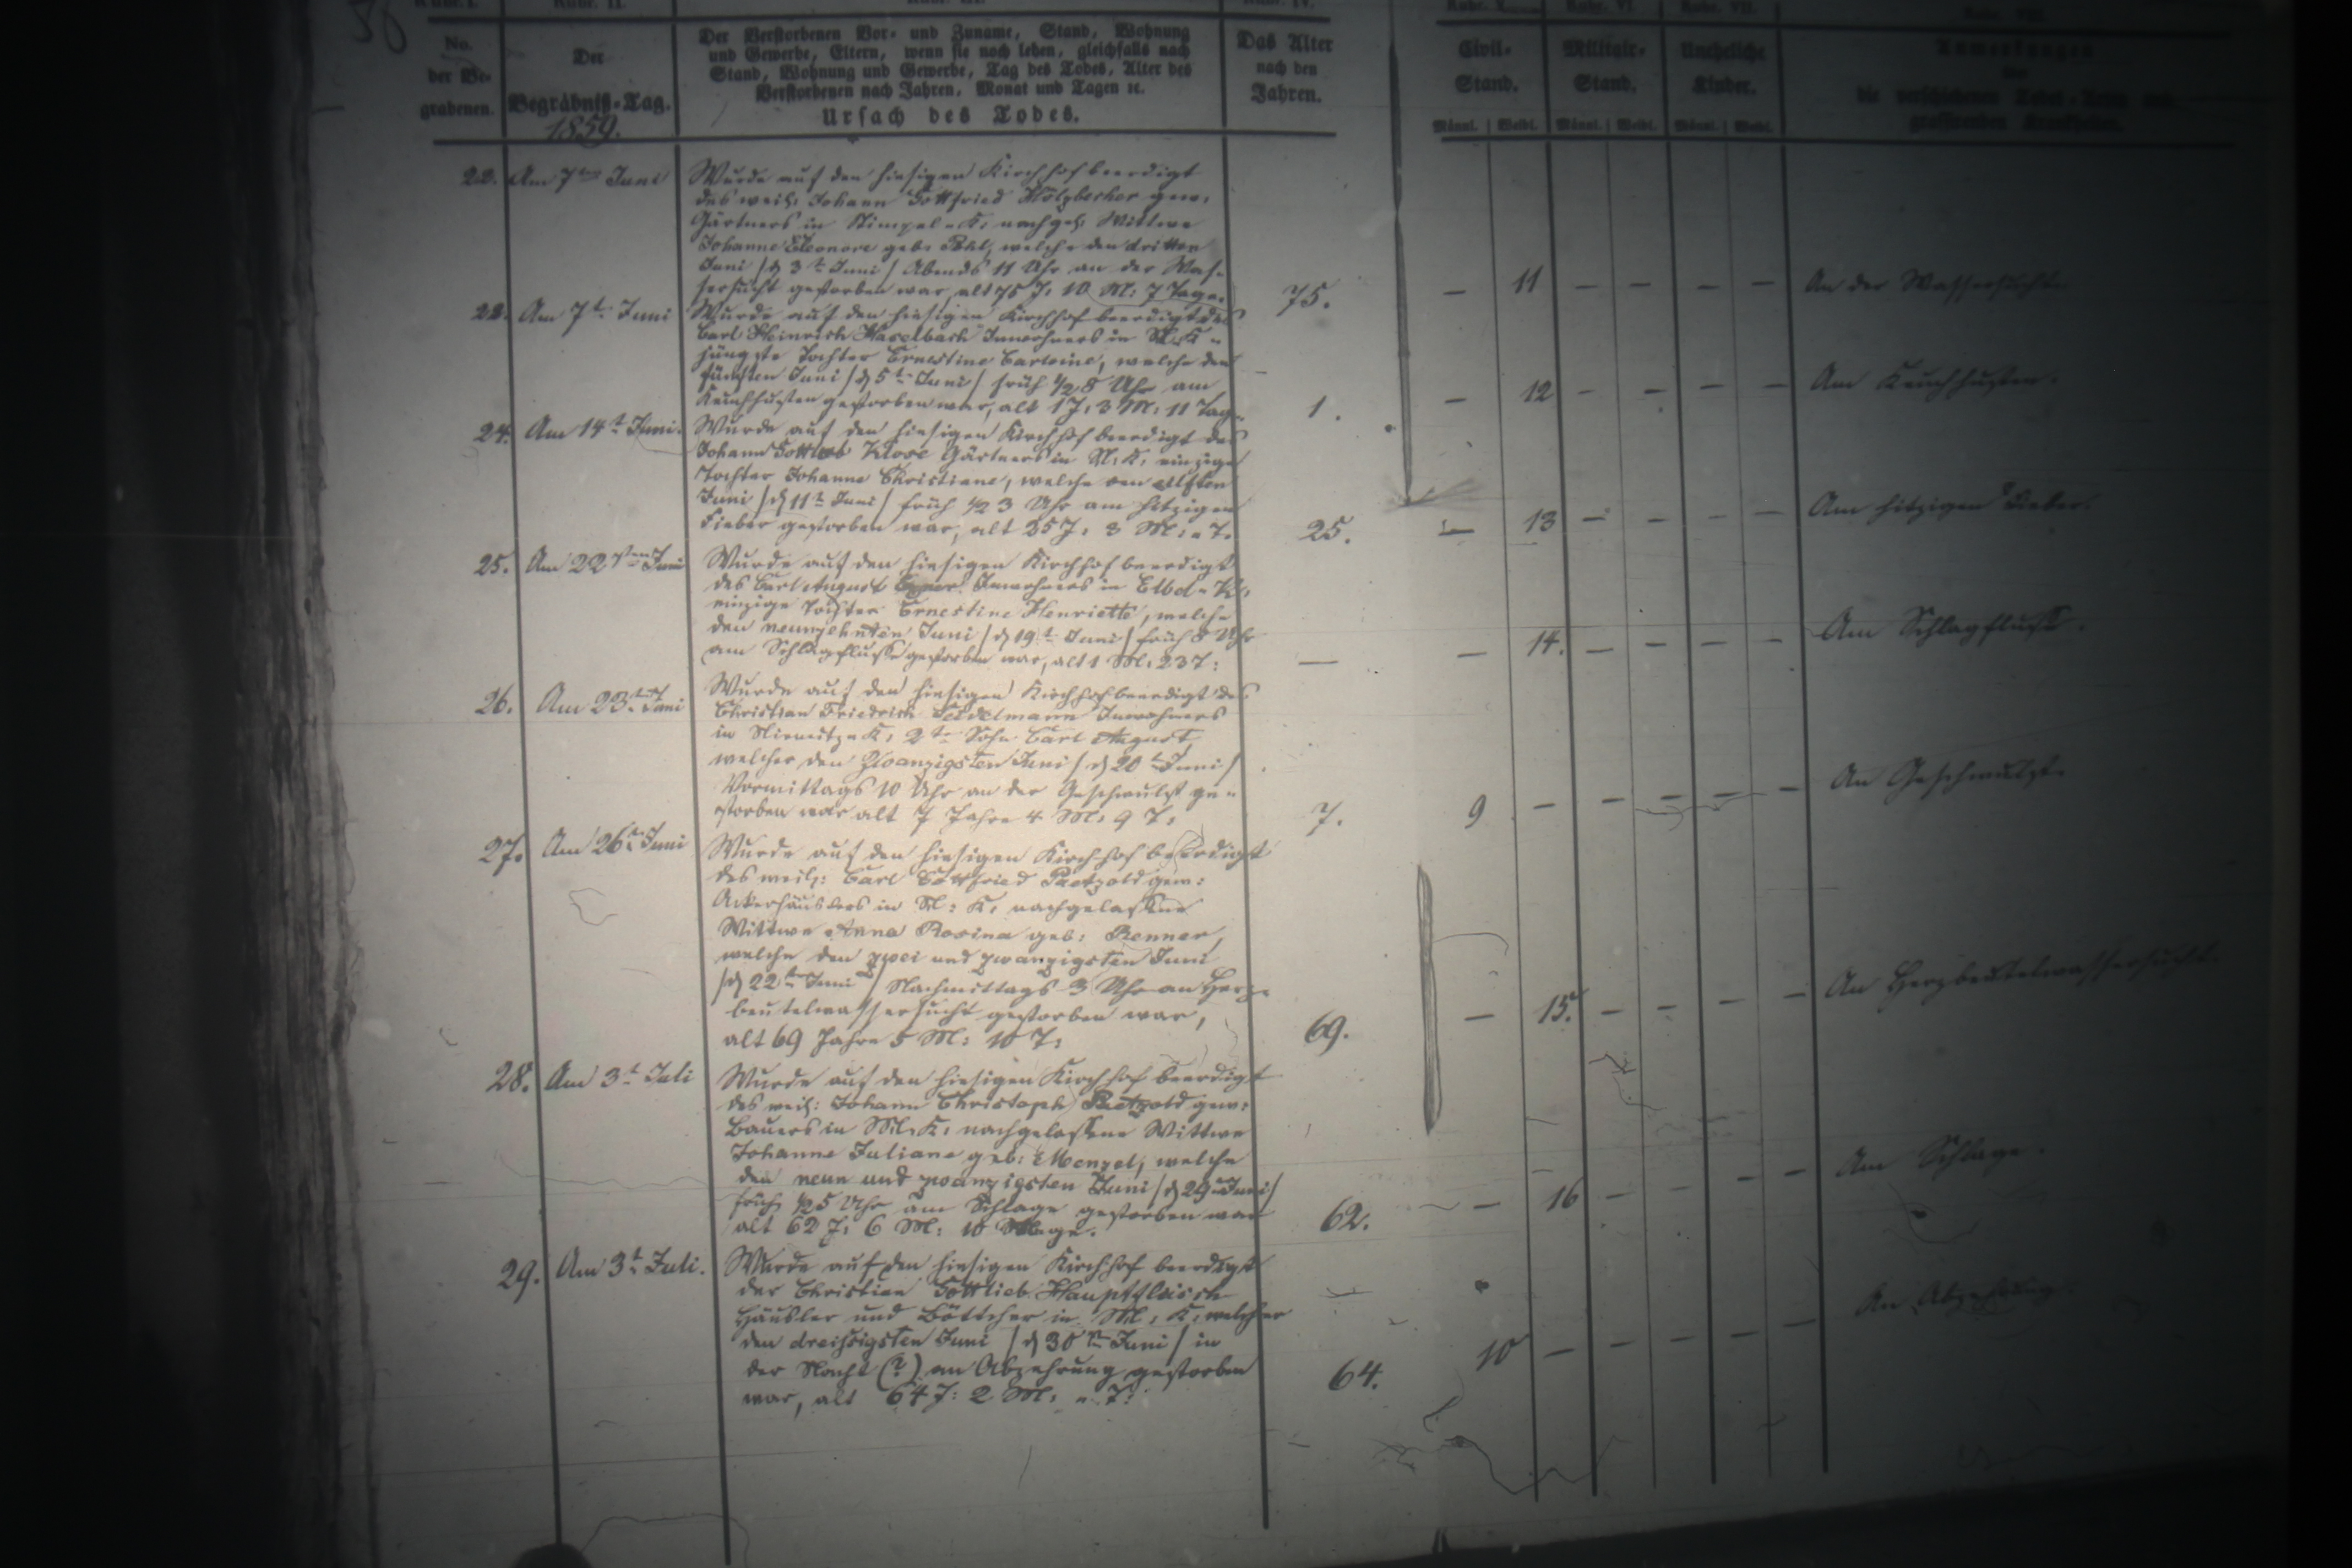 Rubr. II.
No.
der Be-
grabenen.
Der
Begräbniß-Tag.
1859.
Der Verstorbenen Vor- und Zuname, Stand, Wohnung
und Gewerbe, Eltern, wenn sie noch leben, gleichfalls nach
Stand, Wohnung und Gewerbe, Tag des Todes, Alter des
Verstorbenen nach Jahren, Monat und Tagen ꝛc.
Ursach des Todes.
Das Alter
nach den
Jahren.
Civil-
Stand.
Militair-
Stand.
Uneheliche
Kinder.
Anmerkungen
Männl. Weibl. Männl. Weibl. Männl. Weibl.
Am 7ten Juni
Wurde auf den hiesigen Kirchhof beerdigt
des weil: Johann Gottfried Holzbecher gew:
Gärtners in Stimpel-K: nachgel: Wittwe
Johanne Eleonore geb: Pohl, welche den dritten
Juni /d 3t Juni/ Abends 11 Uhr an der Was-
sersucht gestorben war, alt 75 J: 10 M: 7 Tage.
75. — 11 — — — — An der Wassersucht
Am 7t Juni
Wurde auf den hiesigen Kirchhof beerdigt des
Carl Heinrich Haselbach Inwohners in K-
jüngste Tochter Ernestine, welche den
fünften Juni /d 5t Juni/ früh ½8 Uhr am
Keuchhusten gestorben war, alt 1 J: 3 M: 11 Tag.
1. — 12 — — — — Am Keuchhusten.
24. Am 14t Juni.
Wurde auf den hiesigen Kirchhof beerdigt des
Johann Gottlieb Klose Gärtners in K: einzige
Tochter Johanne Christiane, welche den eilften
Juni /d 11t Juni/ früh ½3 Uhr am hitzigen
Fieber gestorben war, alt 25 J: 3 M: „ T.
25. — 13 — — — — Am hitzigen Fieber.
25. Am 22ten Juni
Wurde auf den hiesigen Kirchhof beerdigt
des Carl August Inwohners in Elbel-K:
einzige Tochter Ernestine Henriette, welche
den neunzehnten Juni /d 19t Juni/ früh 8 Uhr
am Schlagflusse gestorben war, alt 1 M: 23 T:
— — 14. — — — — Am Schlagfluß.
26. Am 23ten Juni
Wurde auf den hiesigen Kirchhof beerdigt des
Christian Friedrich Seidelmann Inwohners
in K: 2ter Sohn Carl August,
welcher den Zwanzigsten Juni /d 20t Juni/
Vormittags 10 Uhr an der Geschwulst ge-
storben war alt 7 Jahre 4 M: 9 T:
7. 9 — — — — — An Geschwulst.
27. Am 26t Juni
Wurde auf den hiesigen Kirchhof beerdigt
des weil: Carl Gottfried Paetzold gew:
Ackerhäuslers in K: nachgelassene
Wittwe Anna Rosina geb: Renner,
welche den zwei und zwanzigsten Juni
/d 22t Juni/ Nachmittags 3 Uhr an Herz-
beutelwassersucht gestorben war,
alt 69 Jahre 5 M: 10 T:
69. — 15. — — — — An Herzbeutelwassersucht.
28. Am 3t Juli
Wurde auf den hiesigen Kirchhof beerdigt
des weil: Johann Christoph Paetzold gew:
Bauers in K: nachgelassene Wittwe
Johanne Juliane geb: Menzel, welche
den neun und zwanzigsten Juni /d 29ten Juni/
früh ½5 Uhr am Schlage gestorben war
alt 62 J: 6 M: 10 Tage.
62. — 16 — — — — Am Schlage.
29. Am 3t Juli.
Wurde auf den hiesigen Kirchhof beerdigt
der Christian Gottlieb Hauptfleisch
Häusler und Böttcher in K: welcher
den dreißigsten Juni /d 30t Juni/ in
der Nacht (?) an Abzehrung gestorben
war, alt 64 J: 2 M: „ T:
64. 10 — — — — — An Abzehrung.